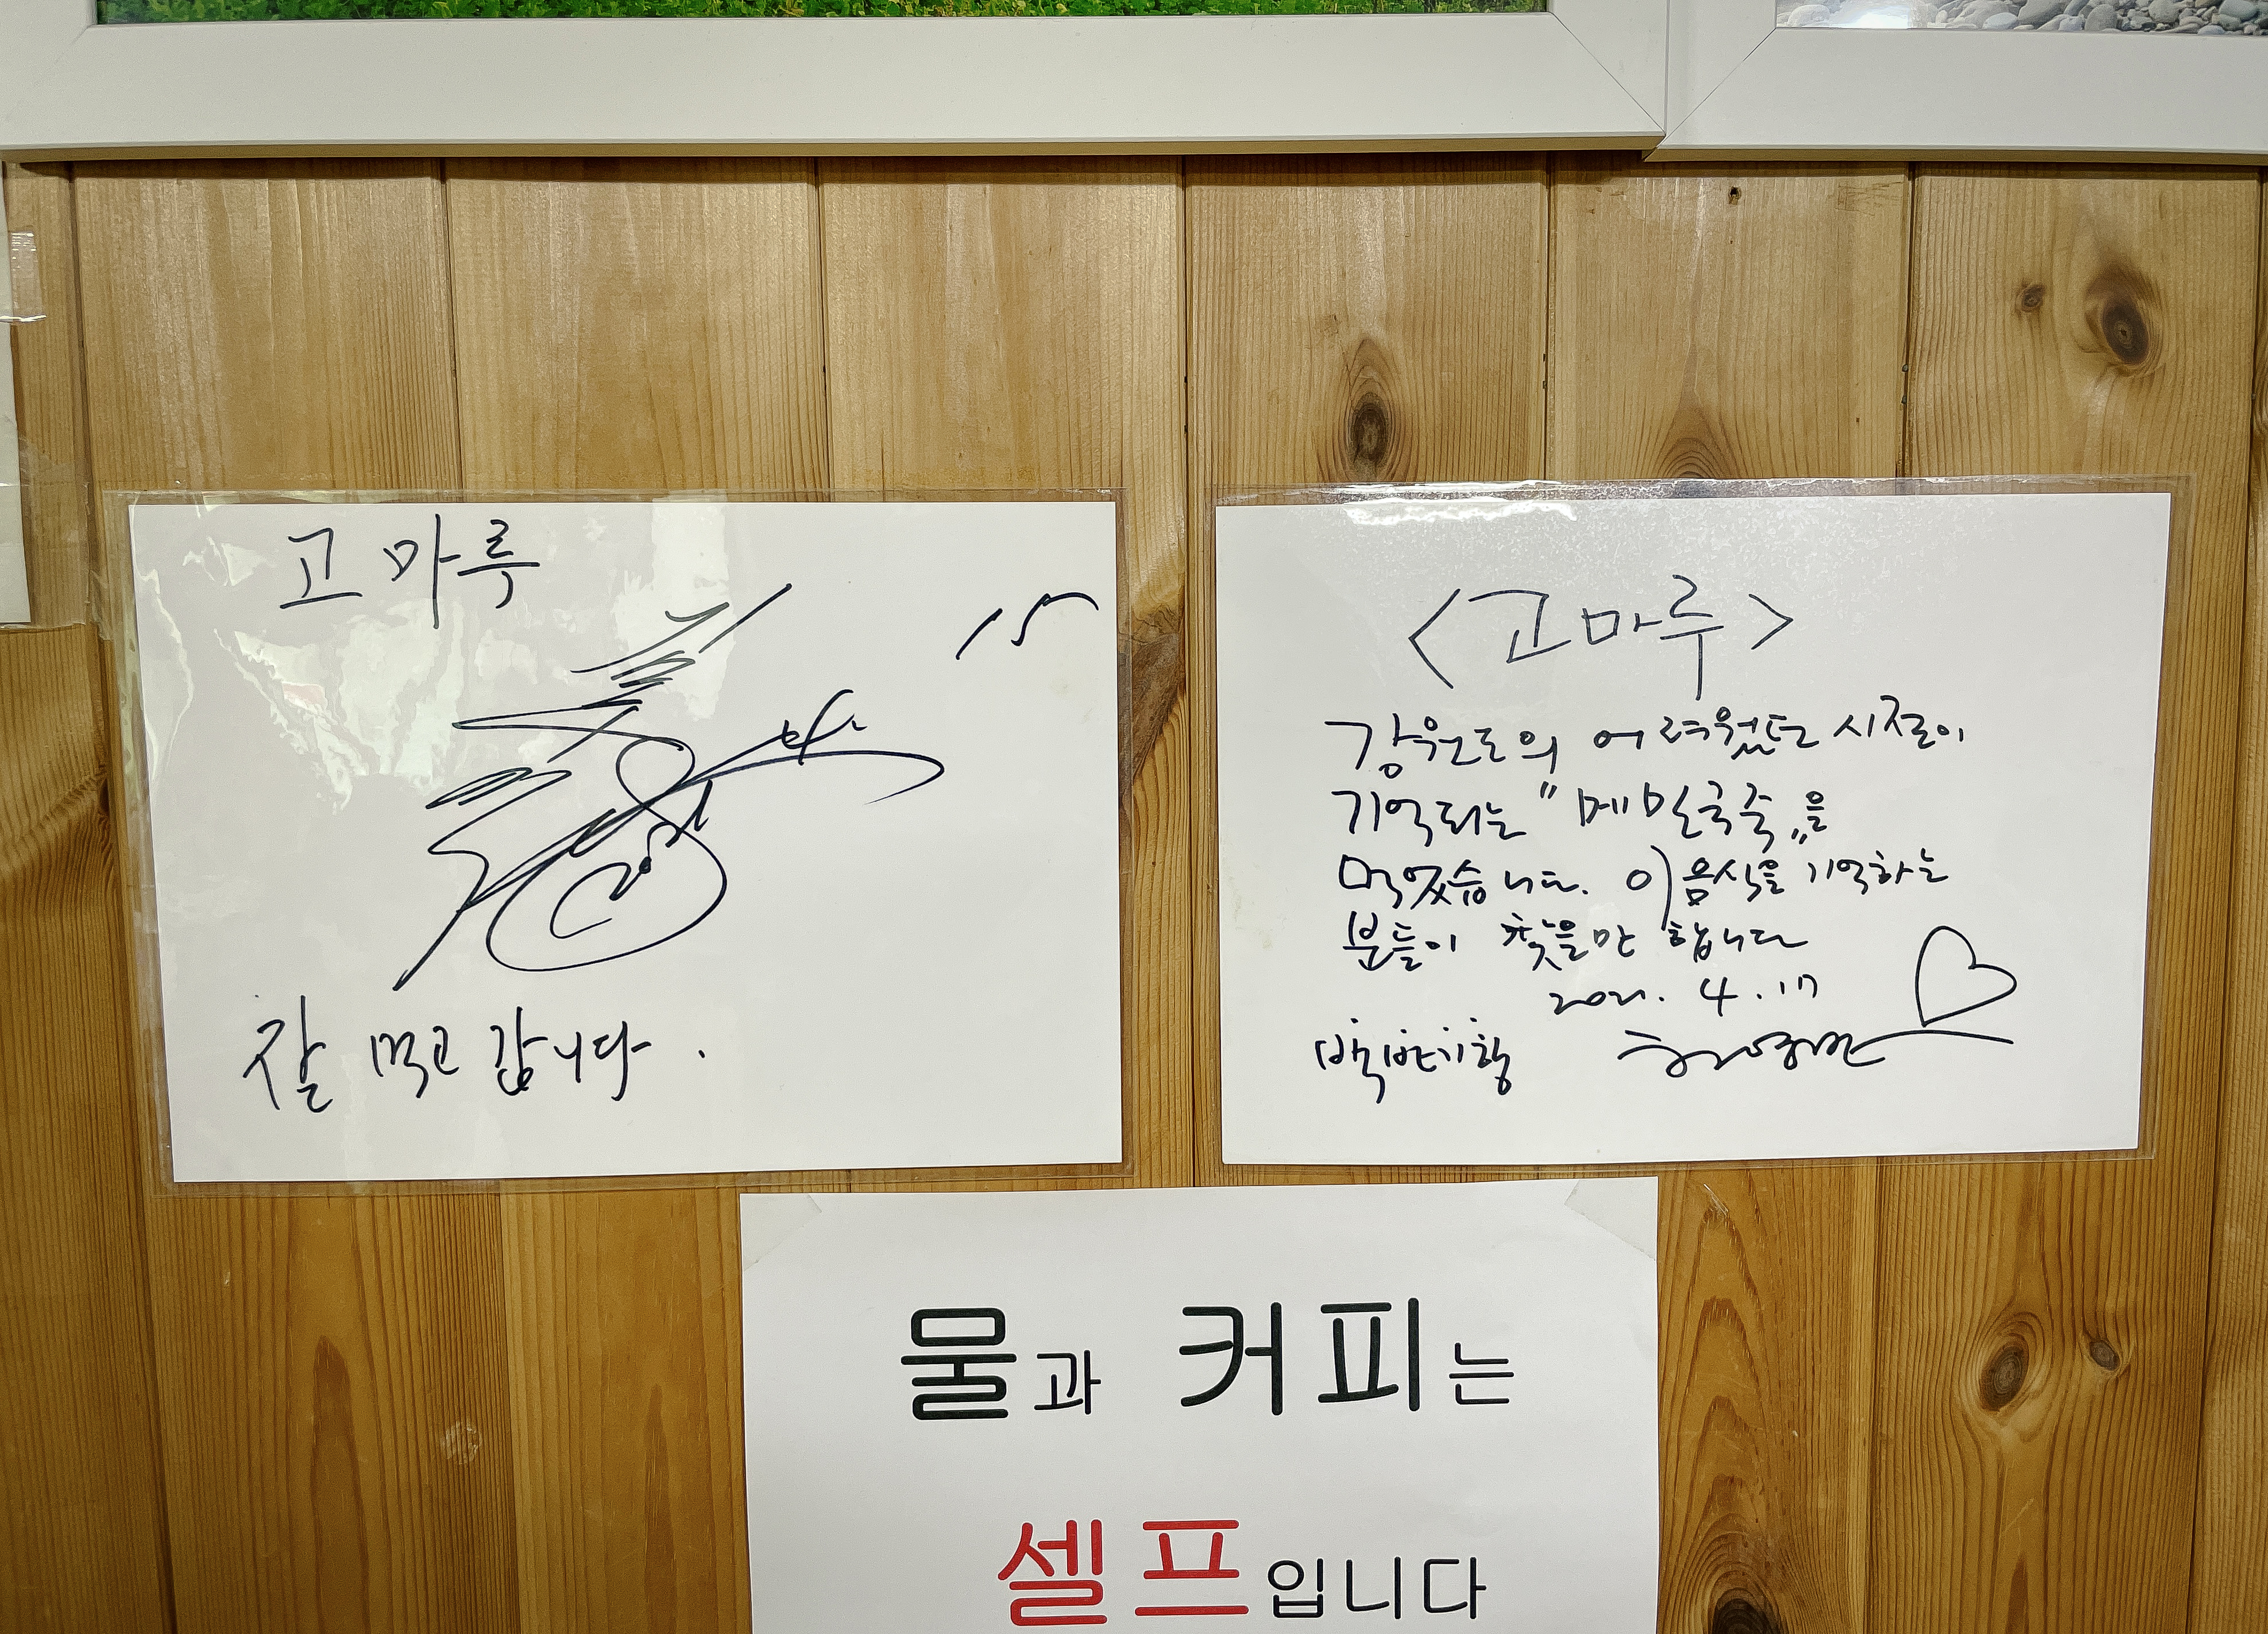 고마루
15
잘 먹고 갑니다.
<고마루>
강원도의 어려웠던 시절이
기억되는 "메밀국죽"을
먹었습니다. 이 음식을 기억하는
분들이 찾을만 합니다
2021. 4. 17
백반기행
물과 커피는
셀프입니다